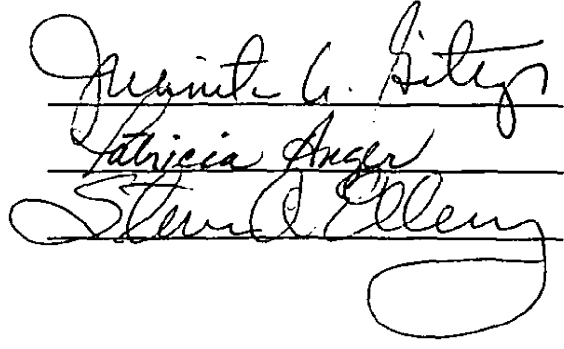 Juanita A.
Patricia Anger
Steven A Ellery